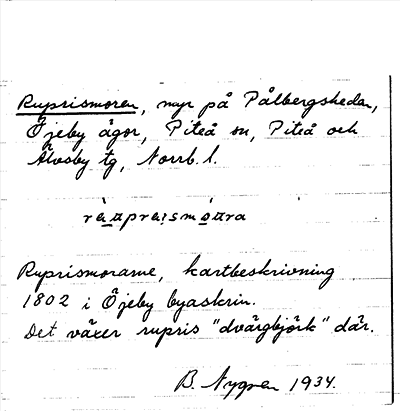 Ruprismoren, myr på Pålbergsheden,
Öjeby ågor, Piteå sn, Piteå och
Älvsby tg, Norrb. l.
Ruprismorarne, kartbeskrivning
1802 i Öjeby byaskrin.
Det växer rupris "dvärgbjörk" där.
B. Nygren 1934.